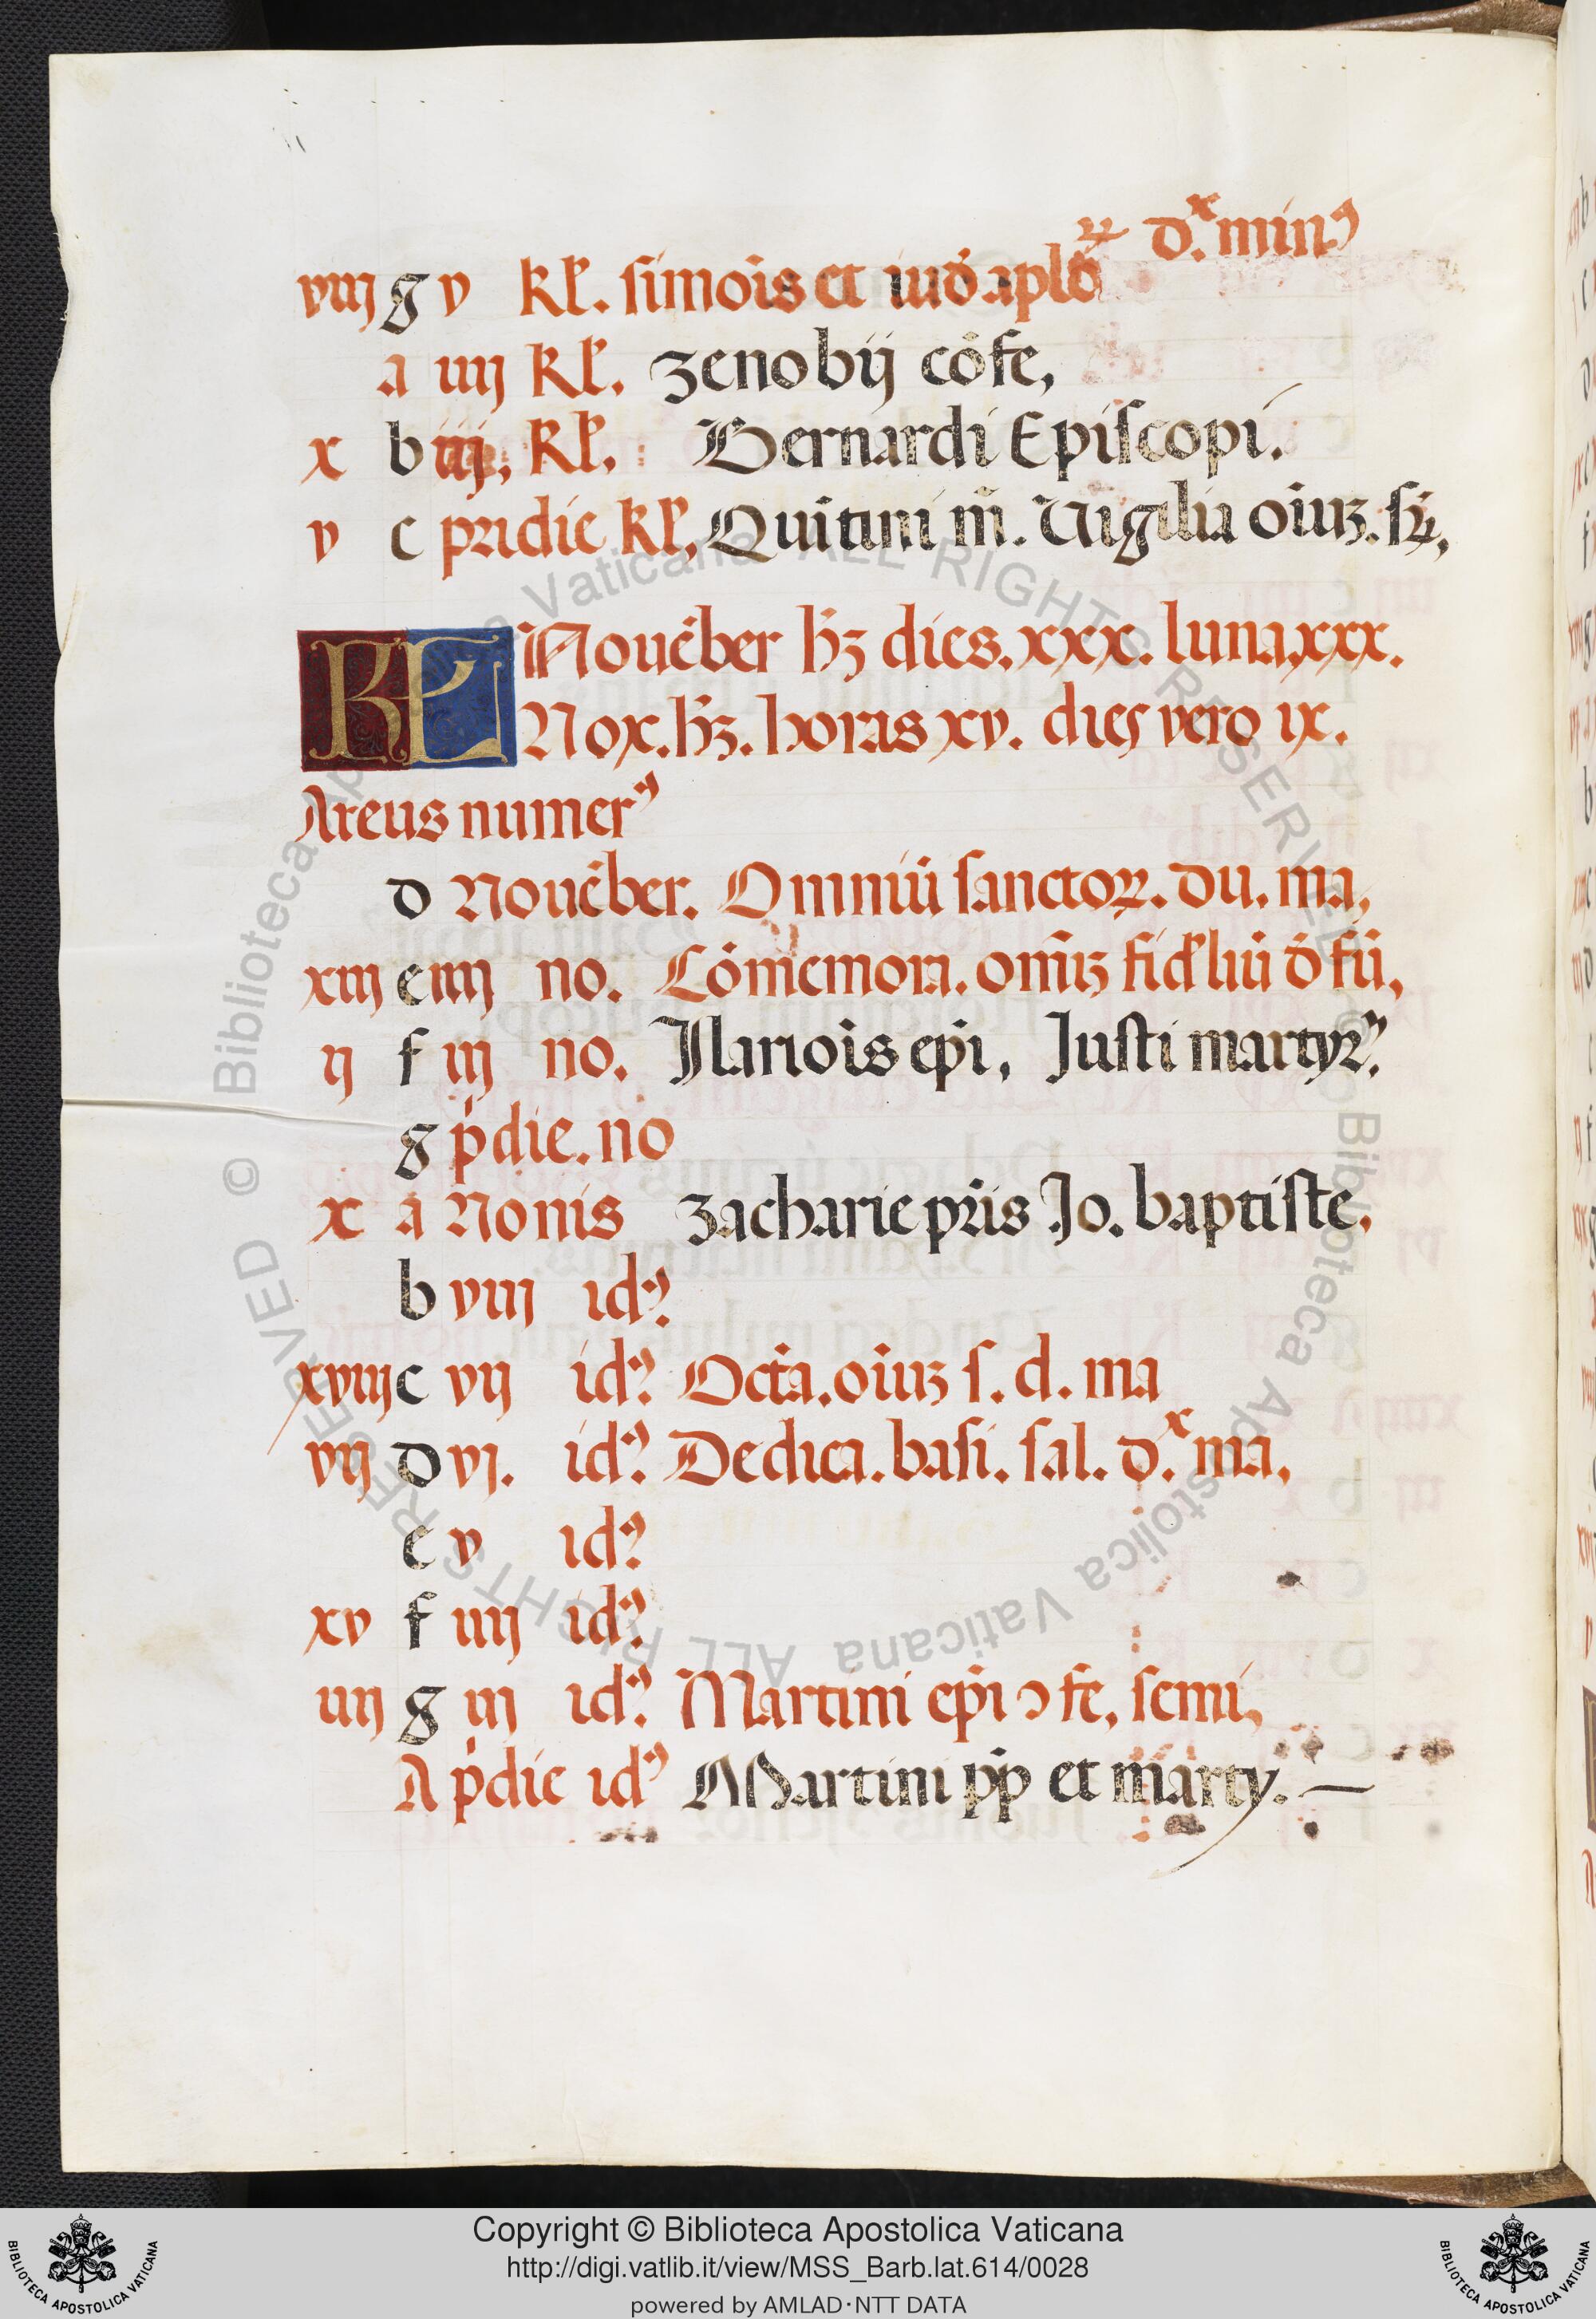 d.x min9
viij g v kł. simōis et iud̄ aplōꝝ
a iiij kł. zenobij cōfe,
x b iij, kł, Bernardi Episcopi.
v c pridie kł, Quītini m̄. Uigilia oīuꝫ. sꝝ,
KL Nouēber hꝫ dies. xxx. luna, xxx.
Nox. hꝫ. horas xv. dies vero ix.
Areus numer9
d Nouēber. Omniū sanctoꝝ. du. ma,
xiij e iiij no. Cōmemora. om̄iꝫ fideliū defū,
ij f iij no. Ilariōis ep̄i, Justi martyr9.
g p̄die. no
x a Nonis zacharie pr̄is Jo. baptiste.
b viij id9.
xviij c vij id9. Octā. oīuꝫ s. d. ma
vij d vj. id9. Dedica. basi. sal. d.x ma,
e v id9.
xv f iiij id9.
iiij g iij id9. Martini ep̄i ɔfe, semi,
A p̄die id9 Martini pp̄ et marty.
© Biblioteca Apostolica Vaticana ALL RIGHTS RESERVED © Biblioteca Apostolica Vaticana ALL RIGHTS RESERVED
Copyright © Biblioteca Apostolica Vaticana
http://digi.vatlib.it/view/MSS_Barb.lat.614/0028
powered by AMLAD·NTT DATA
BIBLIOTECA APOSTOLICA VATICANA
BIBLIOTECA APOSTOLICA VATICANA